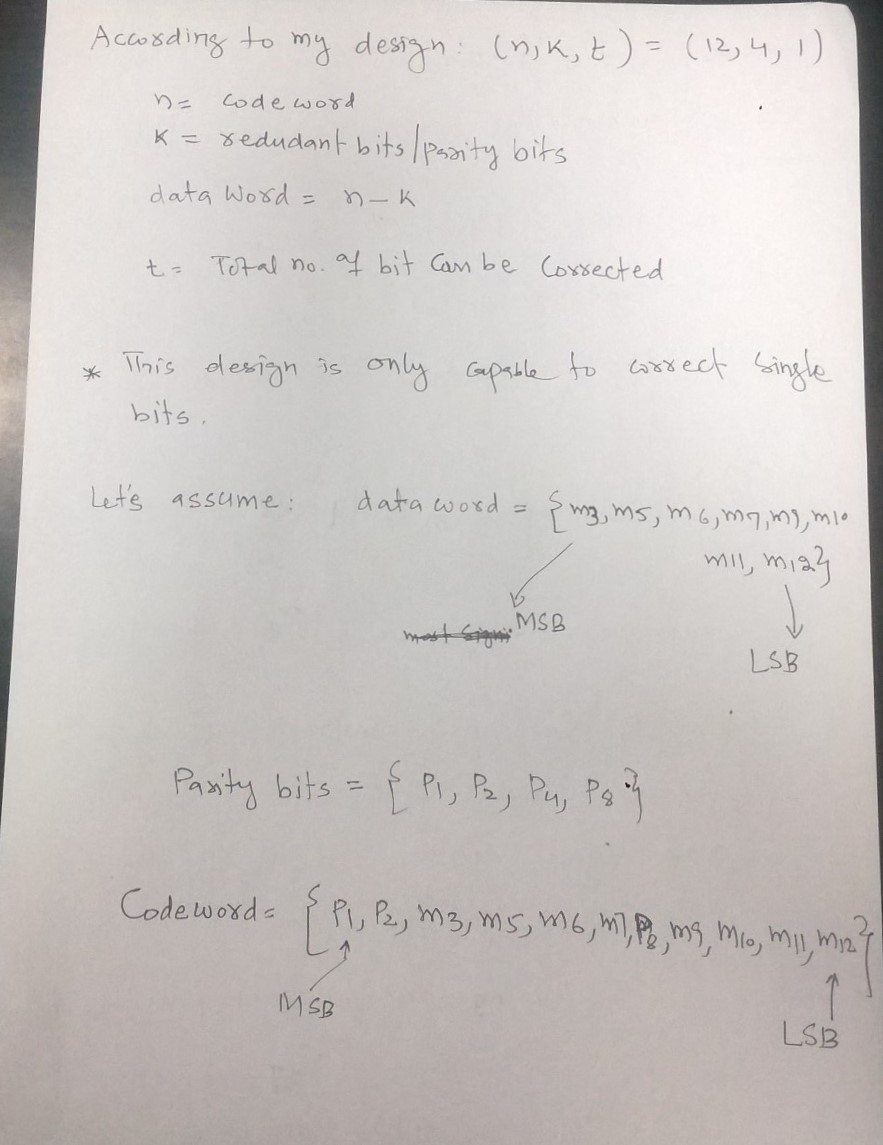 According to my design: (n, K, t) = (12, 4, 1)
n = code word
K = redudant bits/parity bits
data Word = n - K
t = Total no. of bit Can be Corrected
* This design is only capable to correct Single
bits.
Let's assume: data word = {m3, m5, m6, m7, m9, m10
m11, m12}
most Signi. MSB
LSB
Parity bits = { P1, P2, P4, P8 }
Codeword = { P1, P2, m3, m5, m6, m7, P8, m9, m10, m11, m12}
MSB
LSB